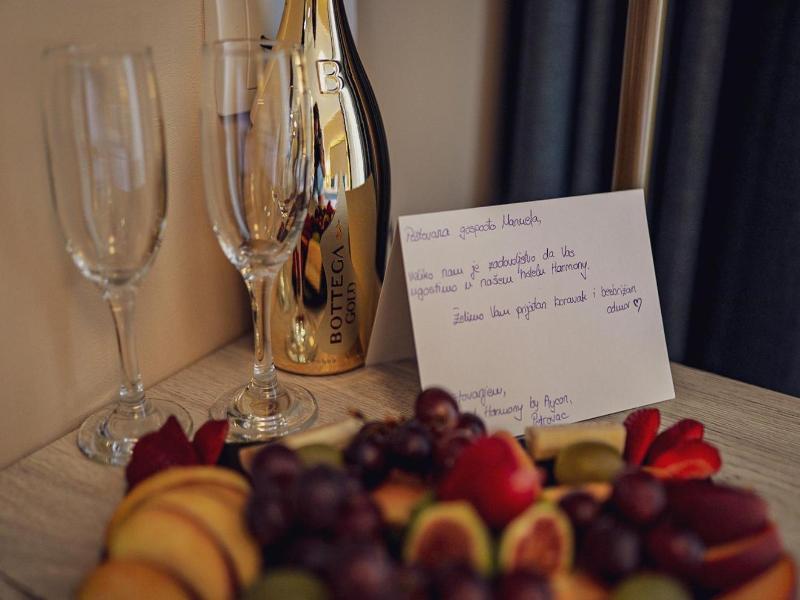 B
BOTTEGA
GOLD
Poštovana gospođo Manuela,
Veliko nam je zadovoljstvo da Vas
ugostimo u našem hotelu Harmony.
Želimo Vam prijatan boravak i bezbrižan
odmor ♡
Harmony by Aycon,
Petrovac